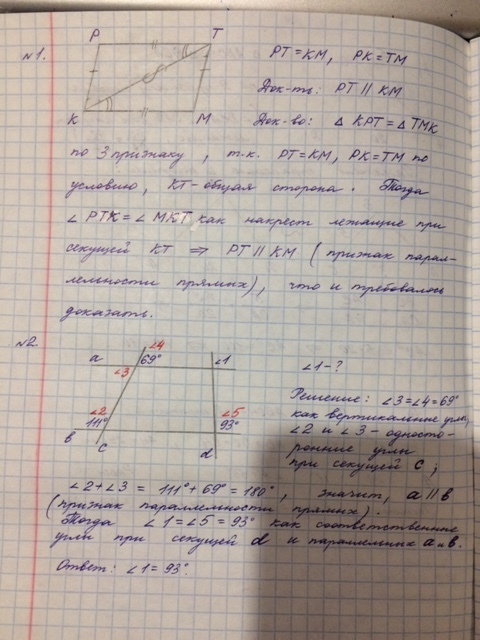 №1.
P T
K M
PT = KM, PK = TM
Док-ть: PT || KM
Док-во: △ KPT = △ TMK
по 3 признаку, т.к. PT = KM, PK = TM по
условию, KT - общая сторона. Тогда
∠ PTK = ∠ MKT как накрест лежащие при
секущей KT ⇒ PT || KM (признак парал-
лельности прямых), что и требовалось
доказать.
№2.
∠4
a 69° ∠1
∠3
∠2 ∠5
111° 93°
b c d
∠1 - ?
Решение: ∠3 = ∠4 = 69°
как вертикальные углы,
∠2 и ∠3 - односто-
ронние углы
при секущей c;
∠2 + ∠3 = 111° + 69° = 180°, значит, a || b
(признак параллельности прямых).
Тогда ∠1 = ∠5 = 93° как соответственные
углы при секущей d и параллельных a и b.
Ответ: ∠1 = 93°.